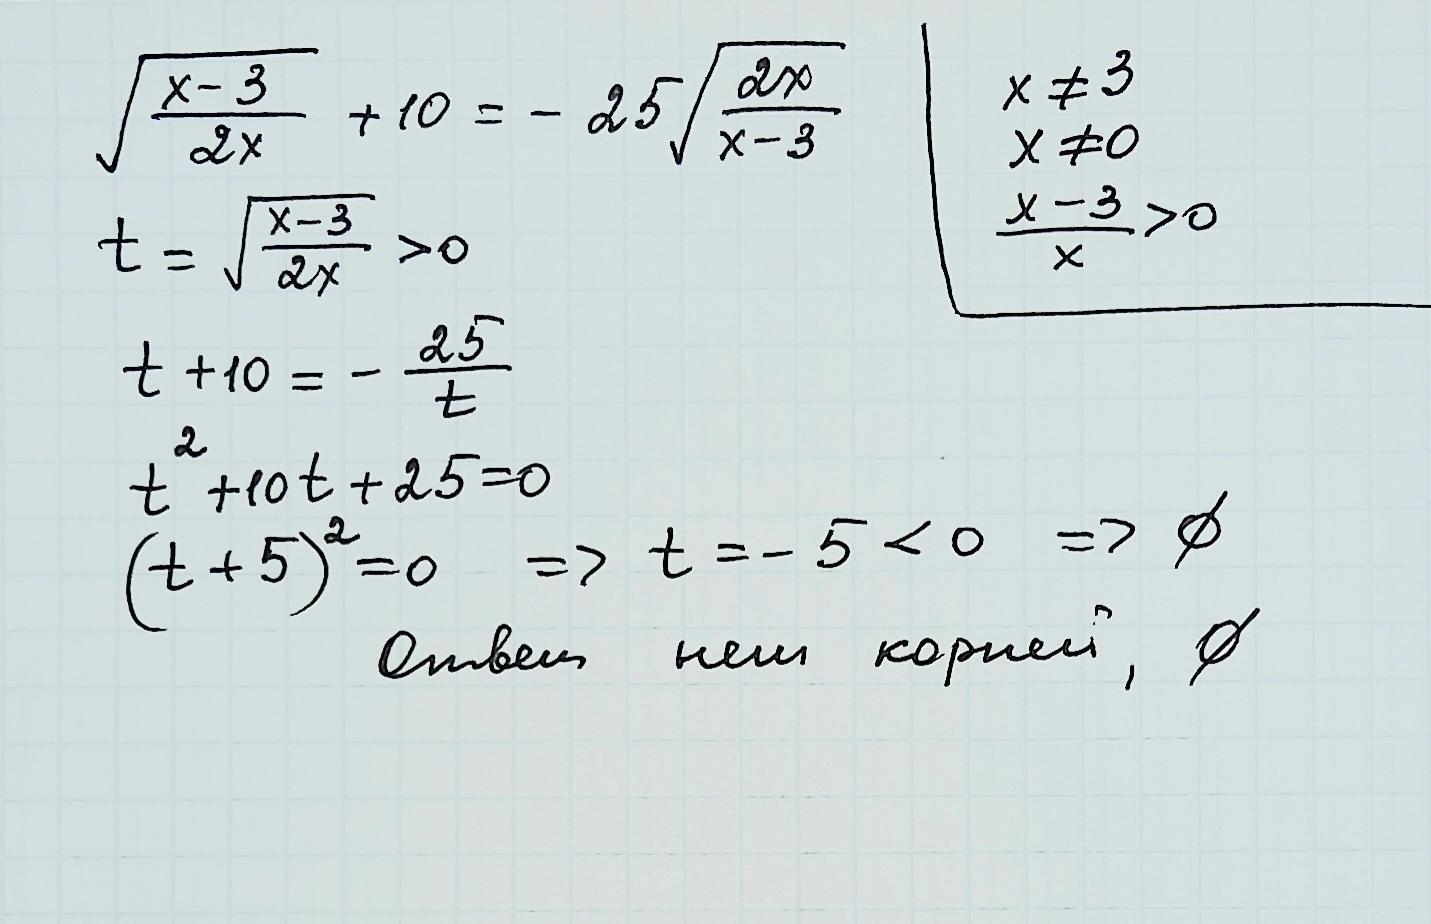 √((x-3)/(2x)) + 10 = - 25√((2x)/(x-3))
x ≠ 3
x ≠ 0
(x-3)/x > 0
t = √((x-3)/(2x)) > 0
t + 10 = - 25/t
t² + 10t + 25 = 0
(t + 5)² = 0 => t = - 5 < 0 => ∅
Ответ нет корней, ∅